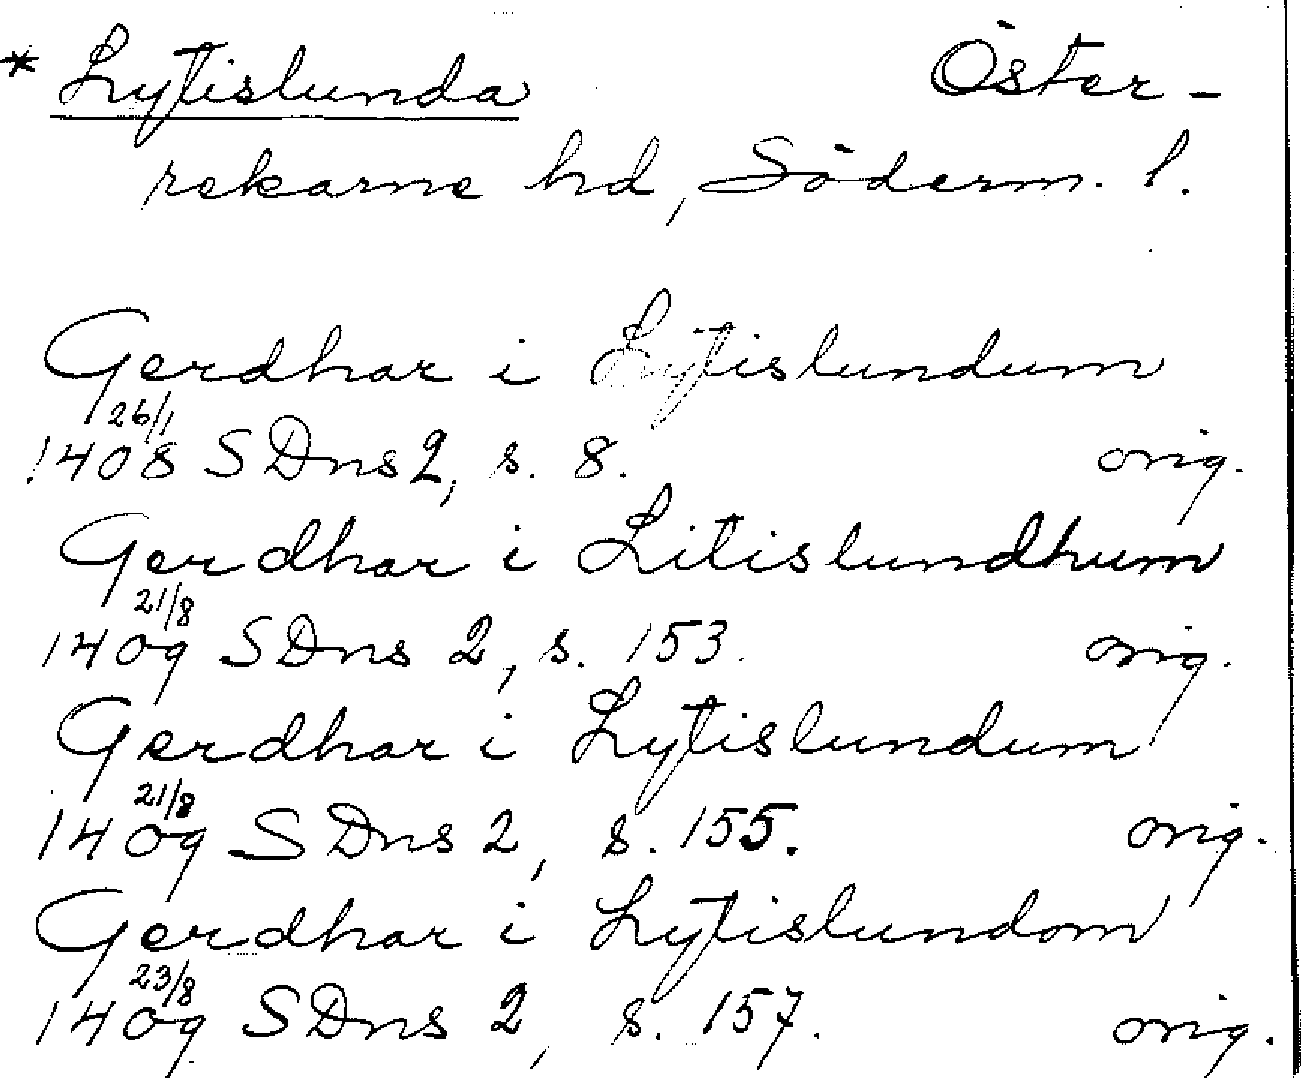 * Lytislunda Öster-
rekarne hd, Söderm. l.
Gerdhar i Lytislundum
26/1
1408 SDns 2, s. 8. orig.
Gerdhar i Litislundhum
21/8
1409 SDns 2, s. 153. orig.
Gerdhar i Lytislundum
21/8
1409 SDns 2, s. 155. orig.
Gerdhar i Lytislundom
23/8
1409 SDns 2, s. 157. orig.